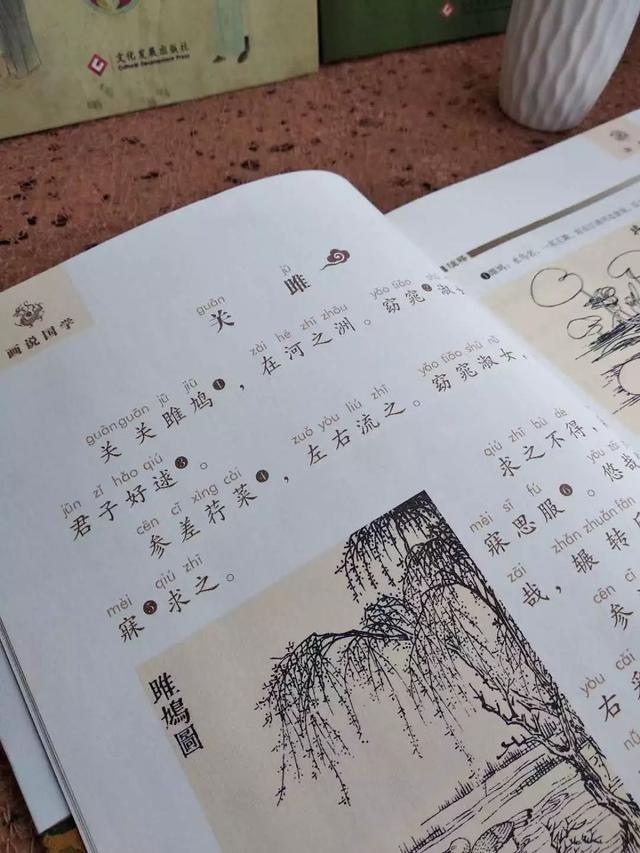 文化发展出版社
Cultural Development Press
画说国学
guān jū
关 雎
guān guān jū jiū zài hé zhī zhōu yǎo tiǎo
关关雎鸠❶,在河之洲。窈窕❷淑
jūn zǐ hǎo qiú
君子好逑❸。
cēn cī xìng cài zuǒ yòu liú zhī yǎo tiǎo shū nǚ
参差荇菜❹,左右流之。窈窕淑女,
mèi qiú zhī
寐❺求之。
雎鳩圖
qiú zhī bù dé
求之不得,
mèi sī fú yōu
寐思服❻。悠哉
zāi zhǎn zhuǎn fǎn
哉,辗转
cēn cī
参
yòu cǎi
右采
nǚ